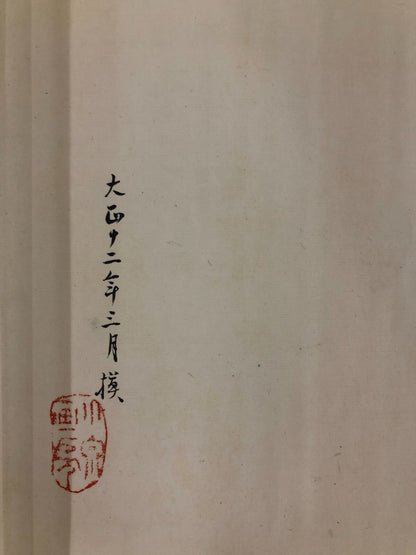 大正十二年三月摸